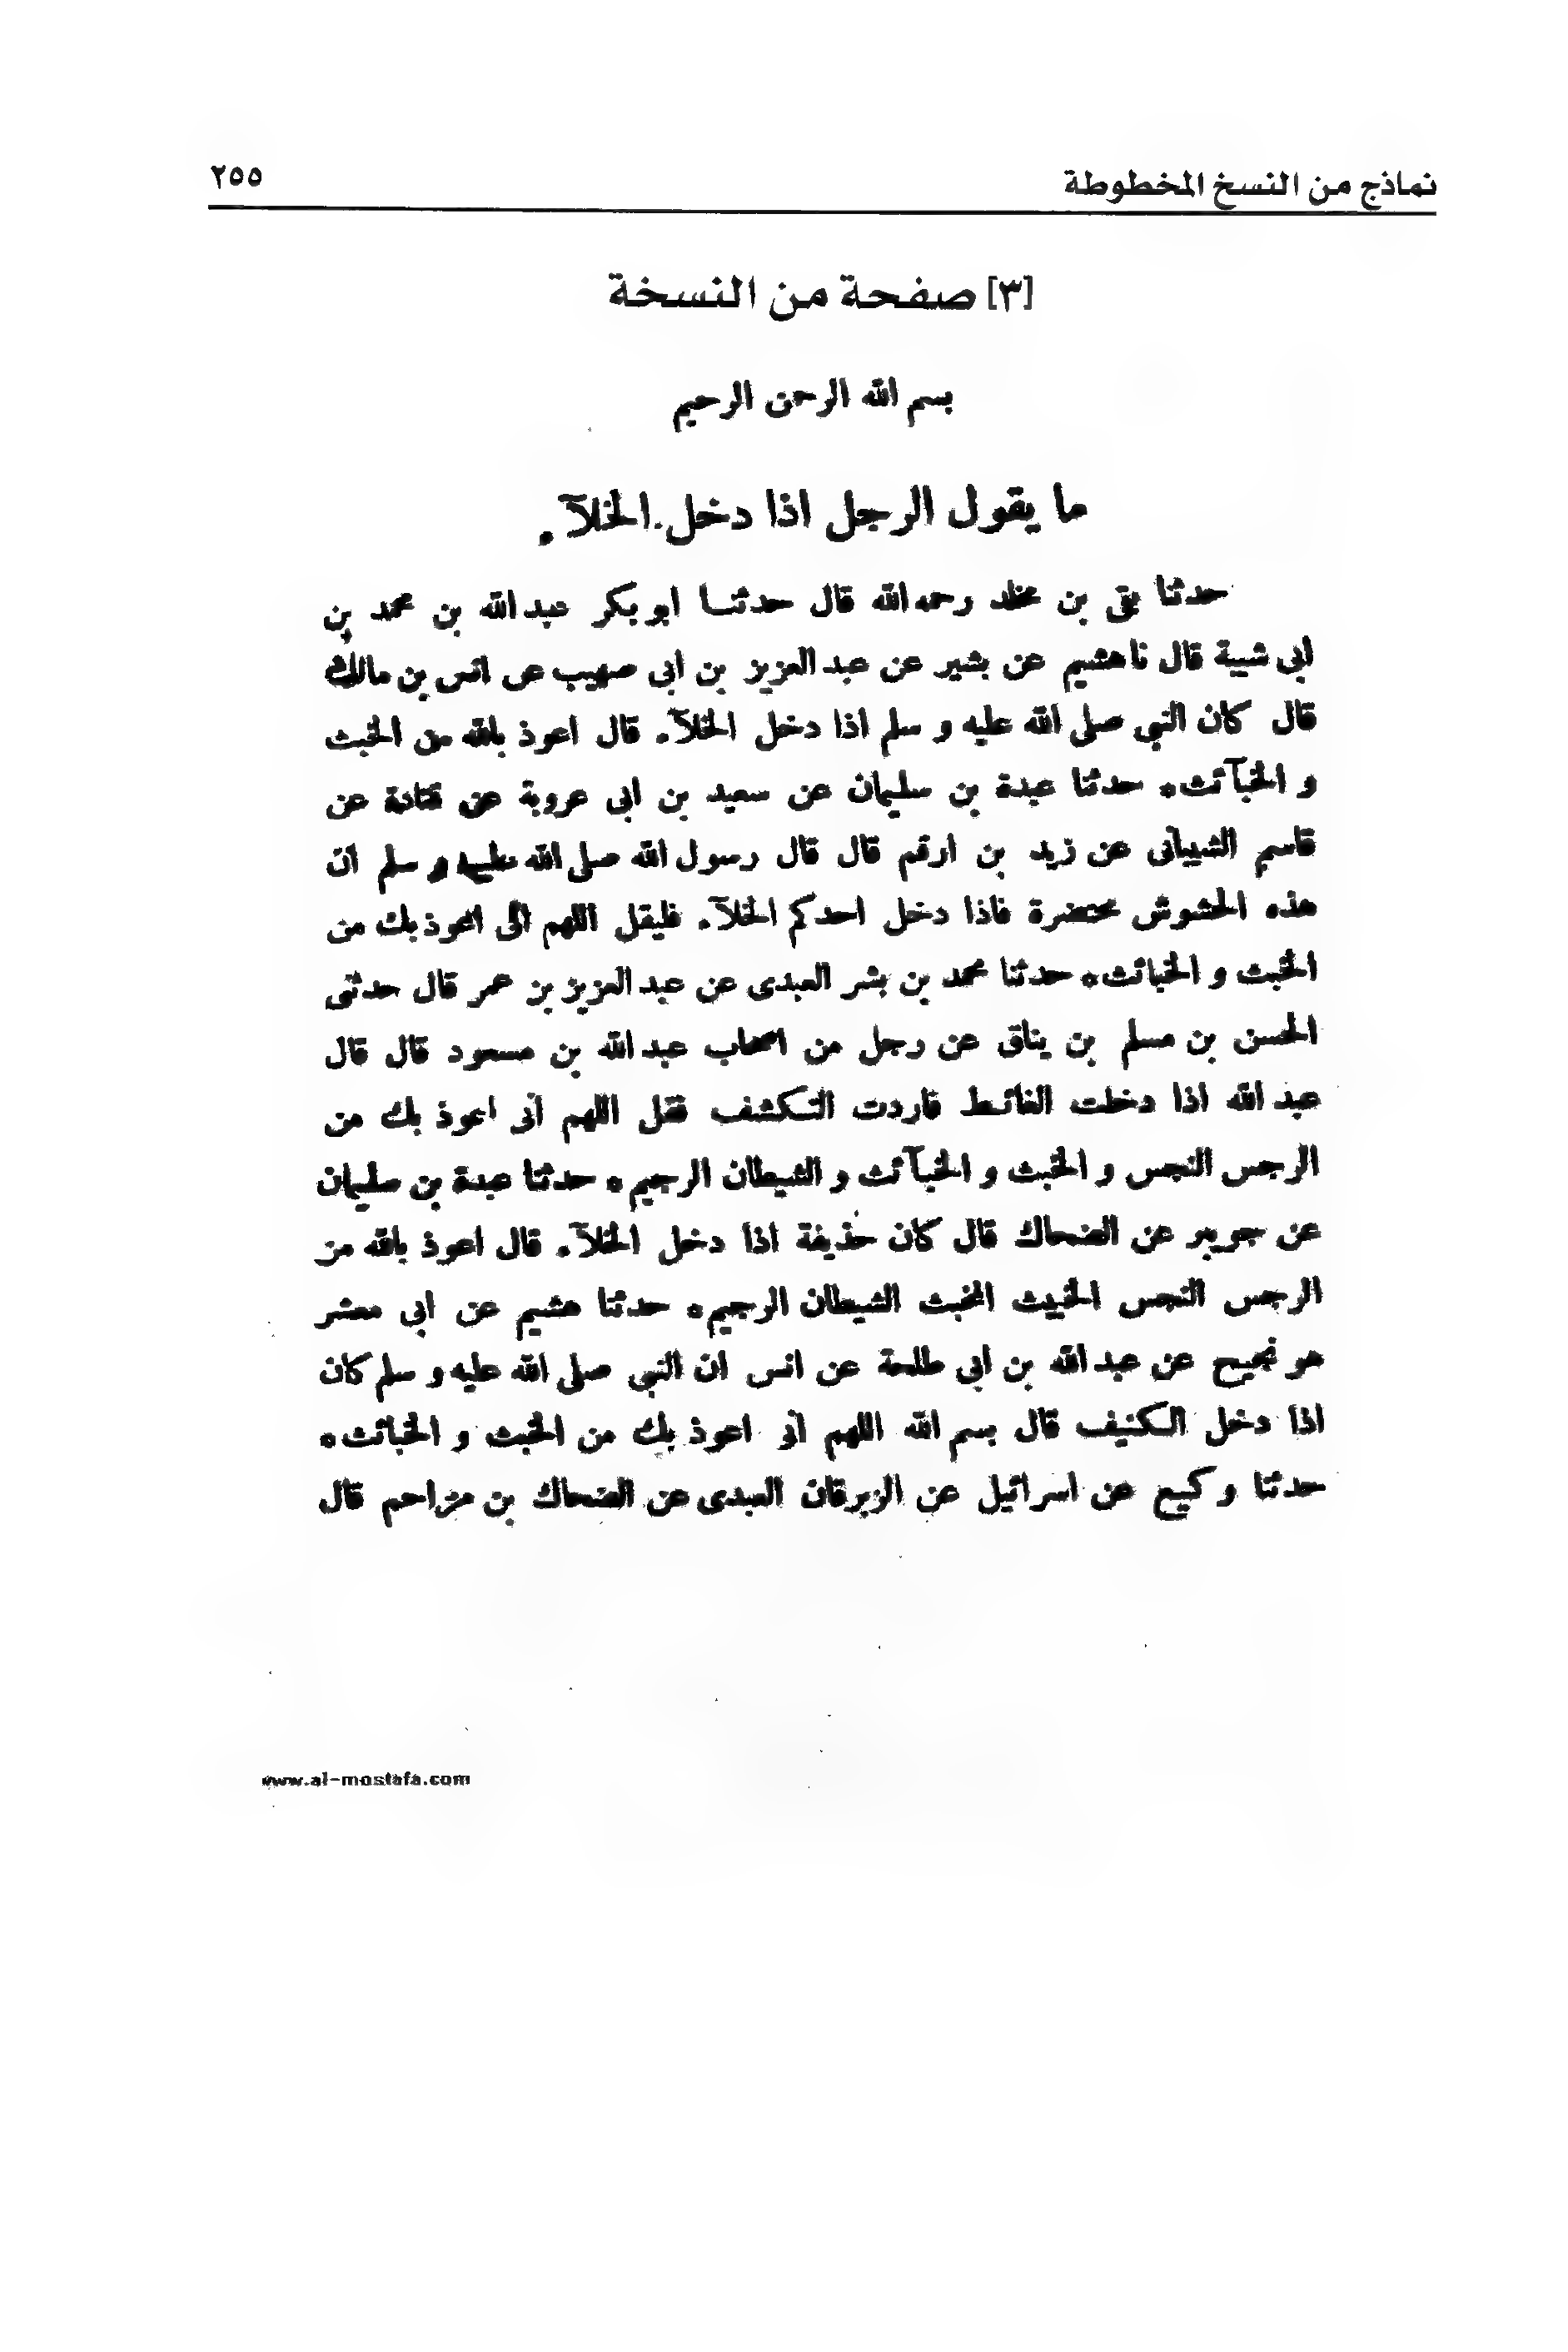 نماذج من النسخ المخطوطة
٢٥٥
[٣] صفحة من النسخة
بسم الله الرحمن الرحيم
ما يقول الرجل اذا دخل الخلآء
حدثنا بقى بن مخلد رحمه الله قال حدثنا ابو بكر عبد الله بن محمد بن
ابى شيبة قال نا هشيم عن بشير عن عبد العزيز بن ابى صهيب عن انس بن مالك
قال كان النبى صلى الله عليه و سلم اذا دخل الخلآء قال اعوذ بالله من الخبث
و الخبآئث ٠ حدثنا عبدة بن سليمان عن سعيد بن ابى عروبة عن قتادة عن
قاسم الشيبانى عن زيد بن ارقم قال قال رسول الله صلى الله عليه و سلم ان
هذه الحشوش محتضرة فاذا دخل احدكم الخلآء فليقل اللهم انى اعوذ بك من
الخبث و الخبائث ٠ حدثنا محمد بن بشر العبدى عن عبد العزيز بن عمر قال حدثنى
الحسن بن مسلم بن يناق عن رجل من اصحاب عبد الله بن مسعود قال قال
عبد الله اذا دخلت الغائط فاردت التكشف فقل اللهم انى اعوذ بك من
الرجس النجس و الخبث و الخبآئث و الشيطان الرجيم ٠ حدثنا عبدة بن سليمان
عن جويبر عن الضحاك قال كان حذيفة اذا دخل الخلآء قال اعوذ بالله من
الرجس النجس الخبيث المخبث الشيطان الرجيم ٠ حدثنا هشيم عن ابى معشر
هو نجيح عن عبد الله بن ابى طلحة عن انس ان النبى صلى الله عليه و سلم كان
اذا دخل الكنيف قال بسم الله اللهم انى اعوذ بك من الخبث و الخبائث ٠
حدثنا و كيع عن اسرائيل عن الزبرقان العبدى عن الضحاك بن مزاحم قال
www.al-mostafa.com